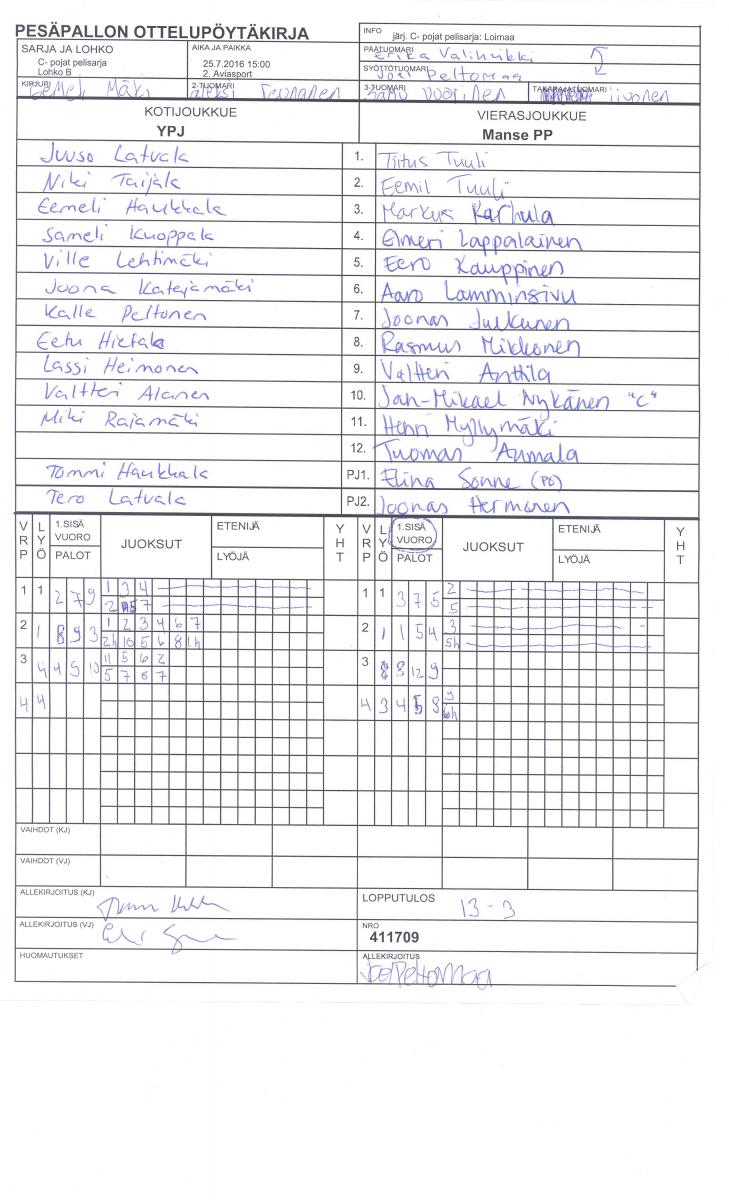 PESÄPALLON OTTELUPÖYTÄKIRJA
INFO järj. C- pojat pelisarja: Loimaa
SARJA JA LOHKO
C- pojat pelisarja
Lohko B
AIKA JA PAIKKA
25.7.2016 15:00
2. Aviasport
PÄÄTUOMARI Erika Väliheikki
SYÖTTÖTUOMARI Joel Peltomaa
KIRJURI Eemeli Mäki
2-TUOMARI
3-TUOMARI Samu Vuorinen
TAKARAJATUOMARI Iivonen
KOTIJOUKKUE
YPJ
VIERASJOUKKUE
Manse PP
Juuso Latvala 1. Tiitus Tuuli
Niki Taijala 2. Eemil Tuuli
Eemeli Haukkala 3. Markus Karhula
Sameli Kuoppala 4. Elmeri Lappalainen
Ville Lehtimäki 5. Eero Kauppinen
Joona Katajamäki 6. Aaro Lamminsivu
Kalle Peltonen 7. Joonas Julkunen
Eetu Hietala 8. Rasmus Mikkonen
Lassi Heimonen 9. Valtteri Anttila
Valtteri Alanen 10. Jan-Mikael Nykänen "C"
Miki Rajamäki 11. Henri Myllymäki
12. Tuomas Aumala
Tommi Haukkala PJ1. Elina Sonne (PO)
Tero Latvala PJ2. Joonas Hermanen
VRP LYÖ 1.SISÄ VUORO PALOT JUOKSUT ETENIJÄ LYÖJÄ YHT VRP LYÖ 1.SISÄ VUORO PALOT JUOKSUT ETENIJÄ LYÖJÄ YHT
1 1 2 7 9 1 3 4 1 1 3 7 5 2
5
2 1 8 9 3 1 2 3 4 6 7 2 1 1 5 4 3
2h 10 5 6 8 1h 5h
3 4 4 9 10 11 5 6 2 3 8 8 12 9
5 7 8 7
4 4 4 3 4 5 8 9
6h
VAIHDOT (KJ)
VAIHDOT (VJ)
ALLEKIRJOITUS (KJ)
LOPPUTULOS 13 - 3
ALLEKIRJOITUS (VJ)
NRO
411709
HUOMAUTUKSET
ALLEKIRJOITUS
Joel Peltomaa